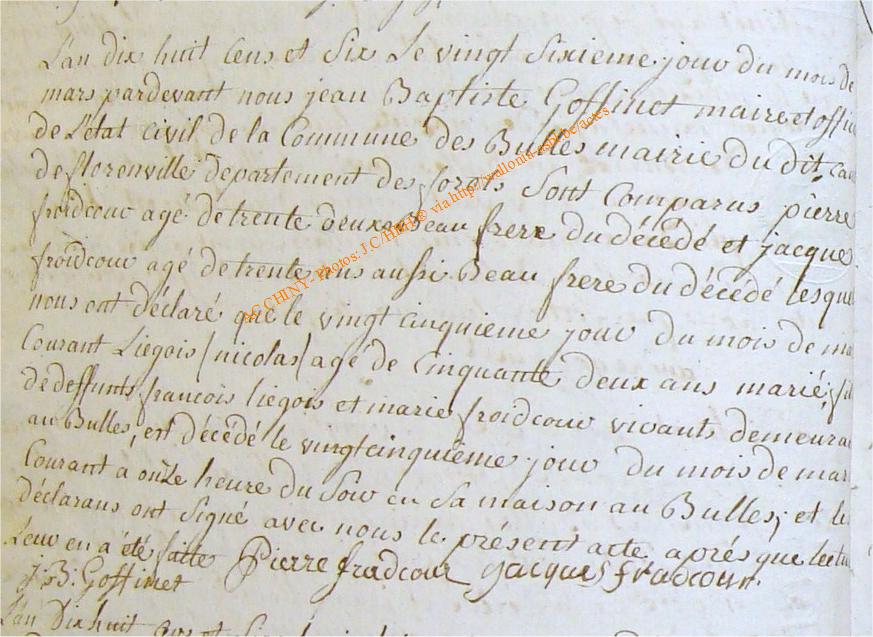 L'an dix huit Cens et Six Le vingt Sixieme jour du mois de
mars pardevant nous jean Baptiste Goffinet maire et offi
de L'état Civil de la Commune des Bulles mairie du dit, ca
de florenville Departement des forets Sont Comparus pierre
froidcour agé de trente deux Beau frere du décédé et jacque
froidcour agé de trente ans aussi Beau frere du décédé lesque
nous ont déclaré que le vingt cinquième jour du mois de ma
Courant Liegois (nicolas) agé de Cinquante deux ans marié, fil
de deffunts françois Liegois et marie froidcour vivants demeura
au Bulles, est décédé le vingtcinquième jour du mois de mar
Courant a onze heure du Soir en Sa maison au Bulles; et les
déclarans ont Signé avec nous le présent acte aprés que lectu
Leur en a été faitte Pierre fradcour jacques fradcour
J: B: Goffinet
L'an Dix huit et
AC CHINY - Photos: J.C. © via http://wallonia-asbl.be/actes